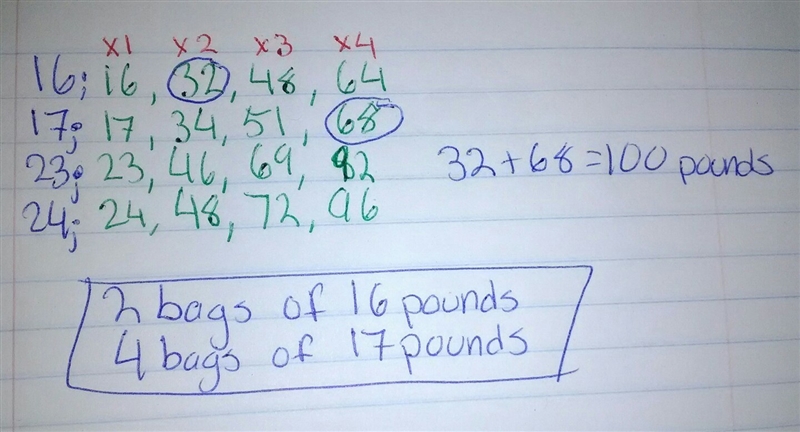 x1 x2 x3 x4
16; 16, 32, 48, 64
17; 17, 34, 51, 68
23; 23, 46, 69, 82
24; 24, 48, 72, 96
32+68=100 pounds
2 bags of 16 pounds
4 bags of 17 pounds